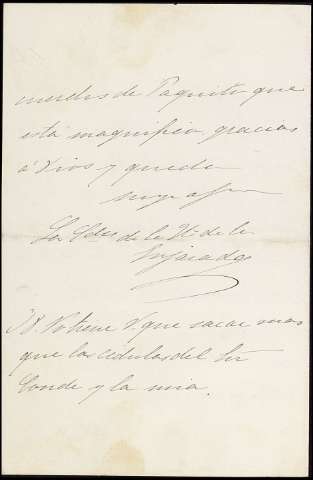 cuerdos de Paquito que
está magnifico, gracias
á Dios y queda
suya afma
La
de la
N. No tiene V. que sacar mas
que las cédulas del Sr
Conde y la mia.